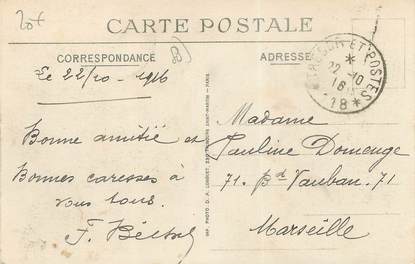 20€
CARTE POSTALE
CORRESPONDANCE
ADRESSE
TRESOR ET POSTES
22-10
16
*18*
Le 22/10-1916
Bonne amitié et
Bonnes caresses à
vous tous.
F.
Madame
Pauline Domenge
71. Bd Vauban. 71
Marseille
IMP. PHOTO. D. A. LONGUET, FAUBOURG SAINT-MARTIN - PARIS.